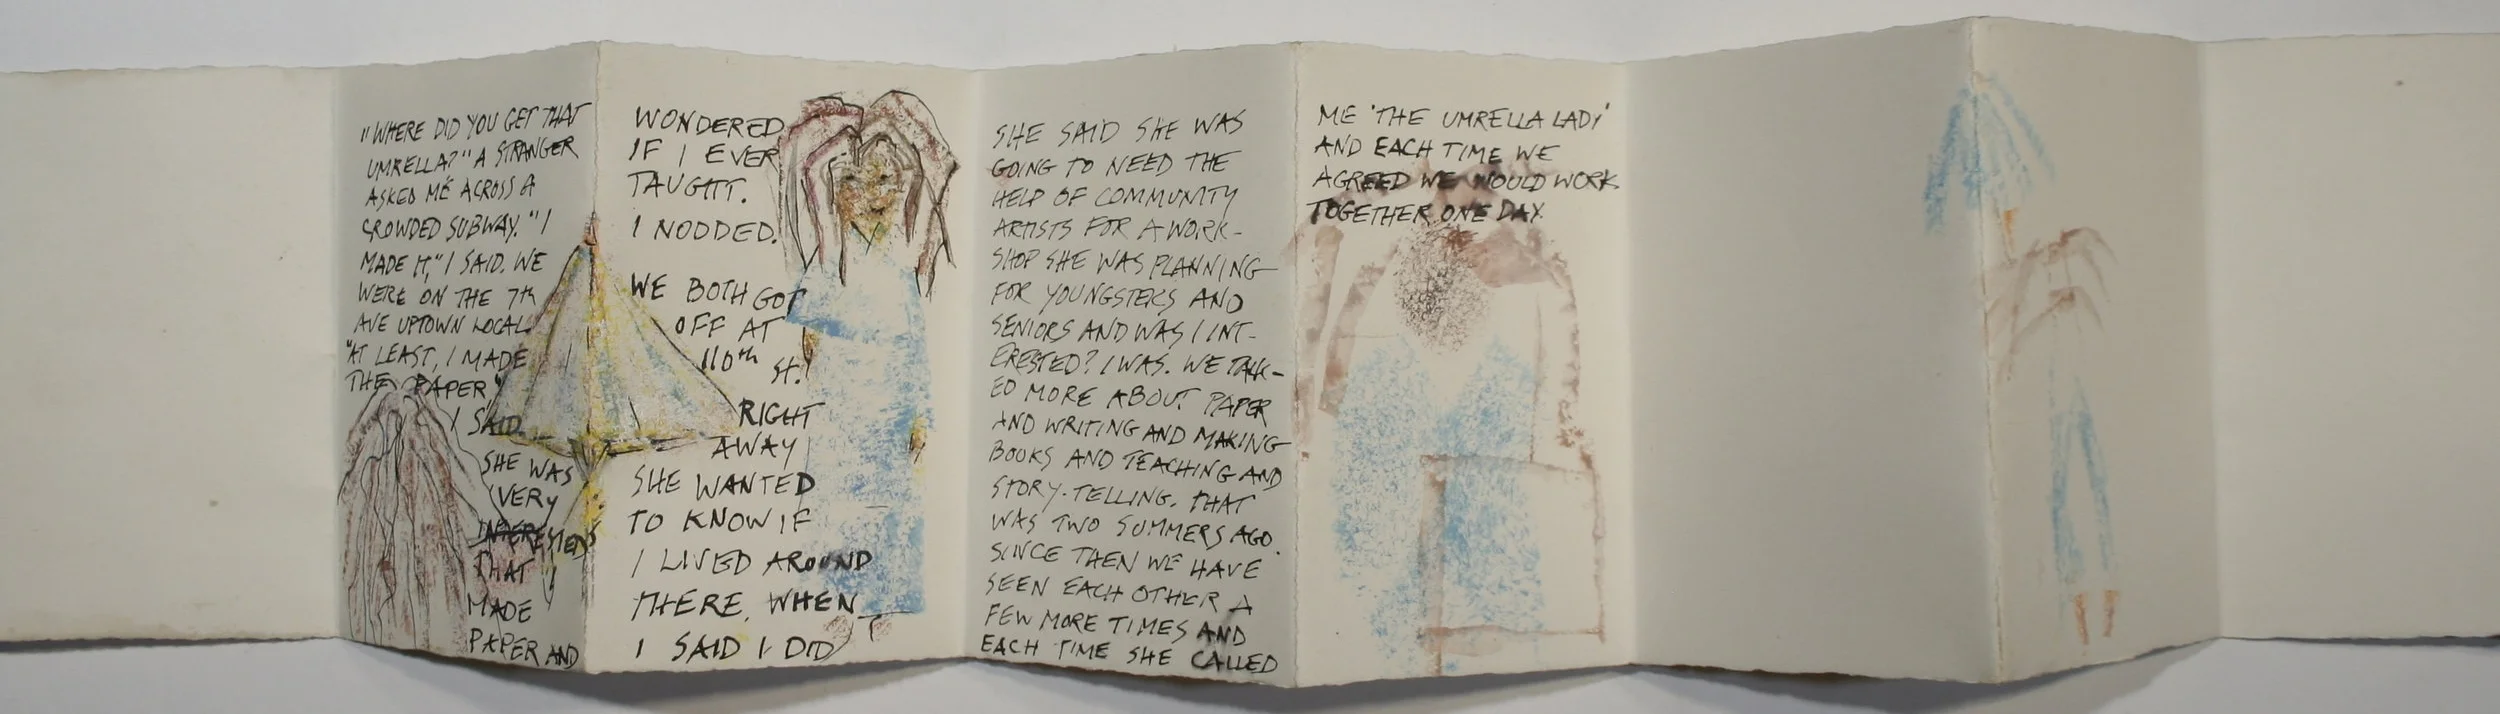 "WHERE DID YOU GET THAT
UMRELLA?" A STRANGER
ASKED ME ACROSS A
CROWDED SUBWAY. "I
MADE IT," I SAID. WE
WERE ON THE 7th
AVE UPTOWN LOCAL.
"AT LEAST, I MADE
THE PAPER,"
I SAID.
SHE WAS
VERY
INTERESTED
THAT I
MADE
PAPER AND
WONDERED
IF I EVER
TAUGHT.
I NODDED.
WE BOTH GOT
OFF AT
110th
St.
RIGHT
AWAY
SHE WANTED
TO KNOW IF
I LIVED AROUND
THERE. WHEN
I SAID I DID
SHE SAID SHE WAS
GOING TO NEED THE
HELP OF COMMUNITY
ARTISTS FOR A WORK-
SHOP SHE WAS PLANNING
FOR YOUNGSTERS AND
SENIORS AND WAS I INT-
ERESTED? I WAS. WE TALK-
ED MORE ABOUT PAPER
AND WRITING AND MAKING
BOOKS AND TEACHING AND
STORY-TELLING. THAT
WAS TWO SUMMERS AGO.
SINCE THEN WE HAVE
SEEN EACH OTHER A
FEW MORE TIMES AND
EACH TIME SHE CALLED
ME 'THE UMRELLA LADY'
AND EACH TIME WE
AGREED WE WOULD WORK
TOGETHER ONE DAY.